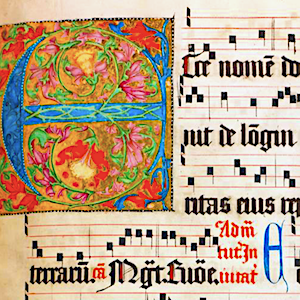 ECce nomē do
iut de lōgin
ritas eius rep
Adm̄
tut.In
terrarū. cā. Mgt̄. Euōe. inuitat